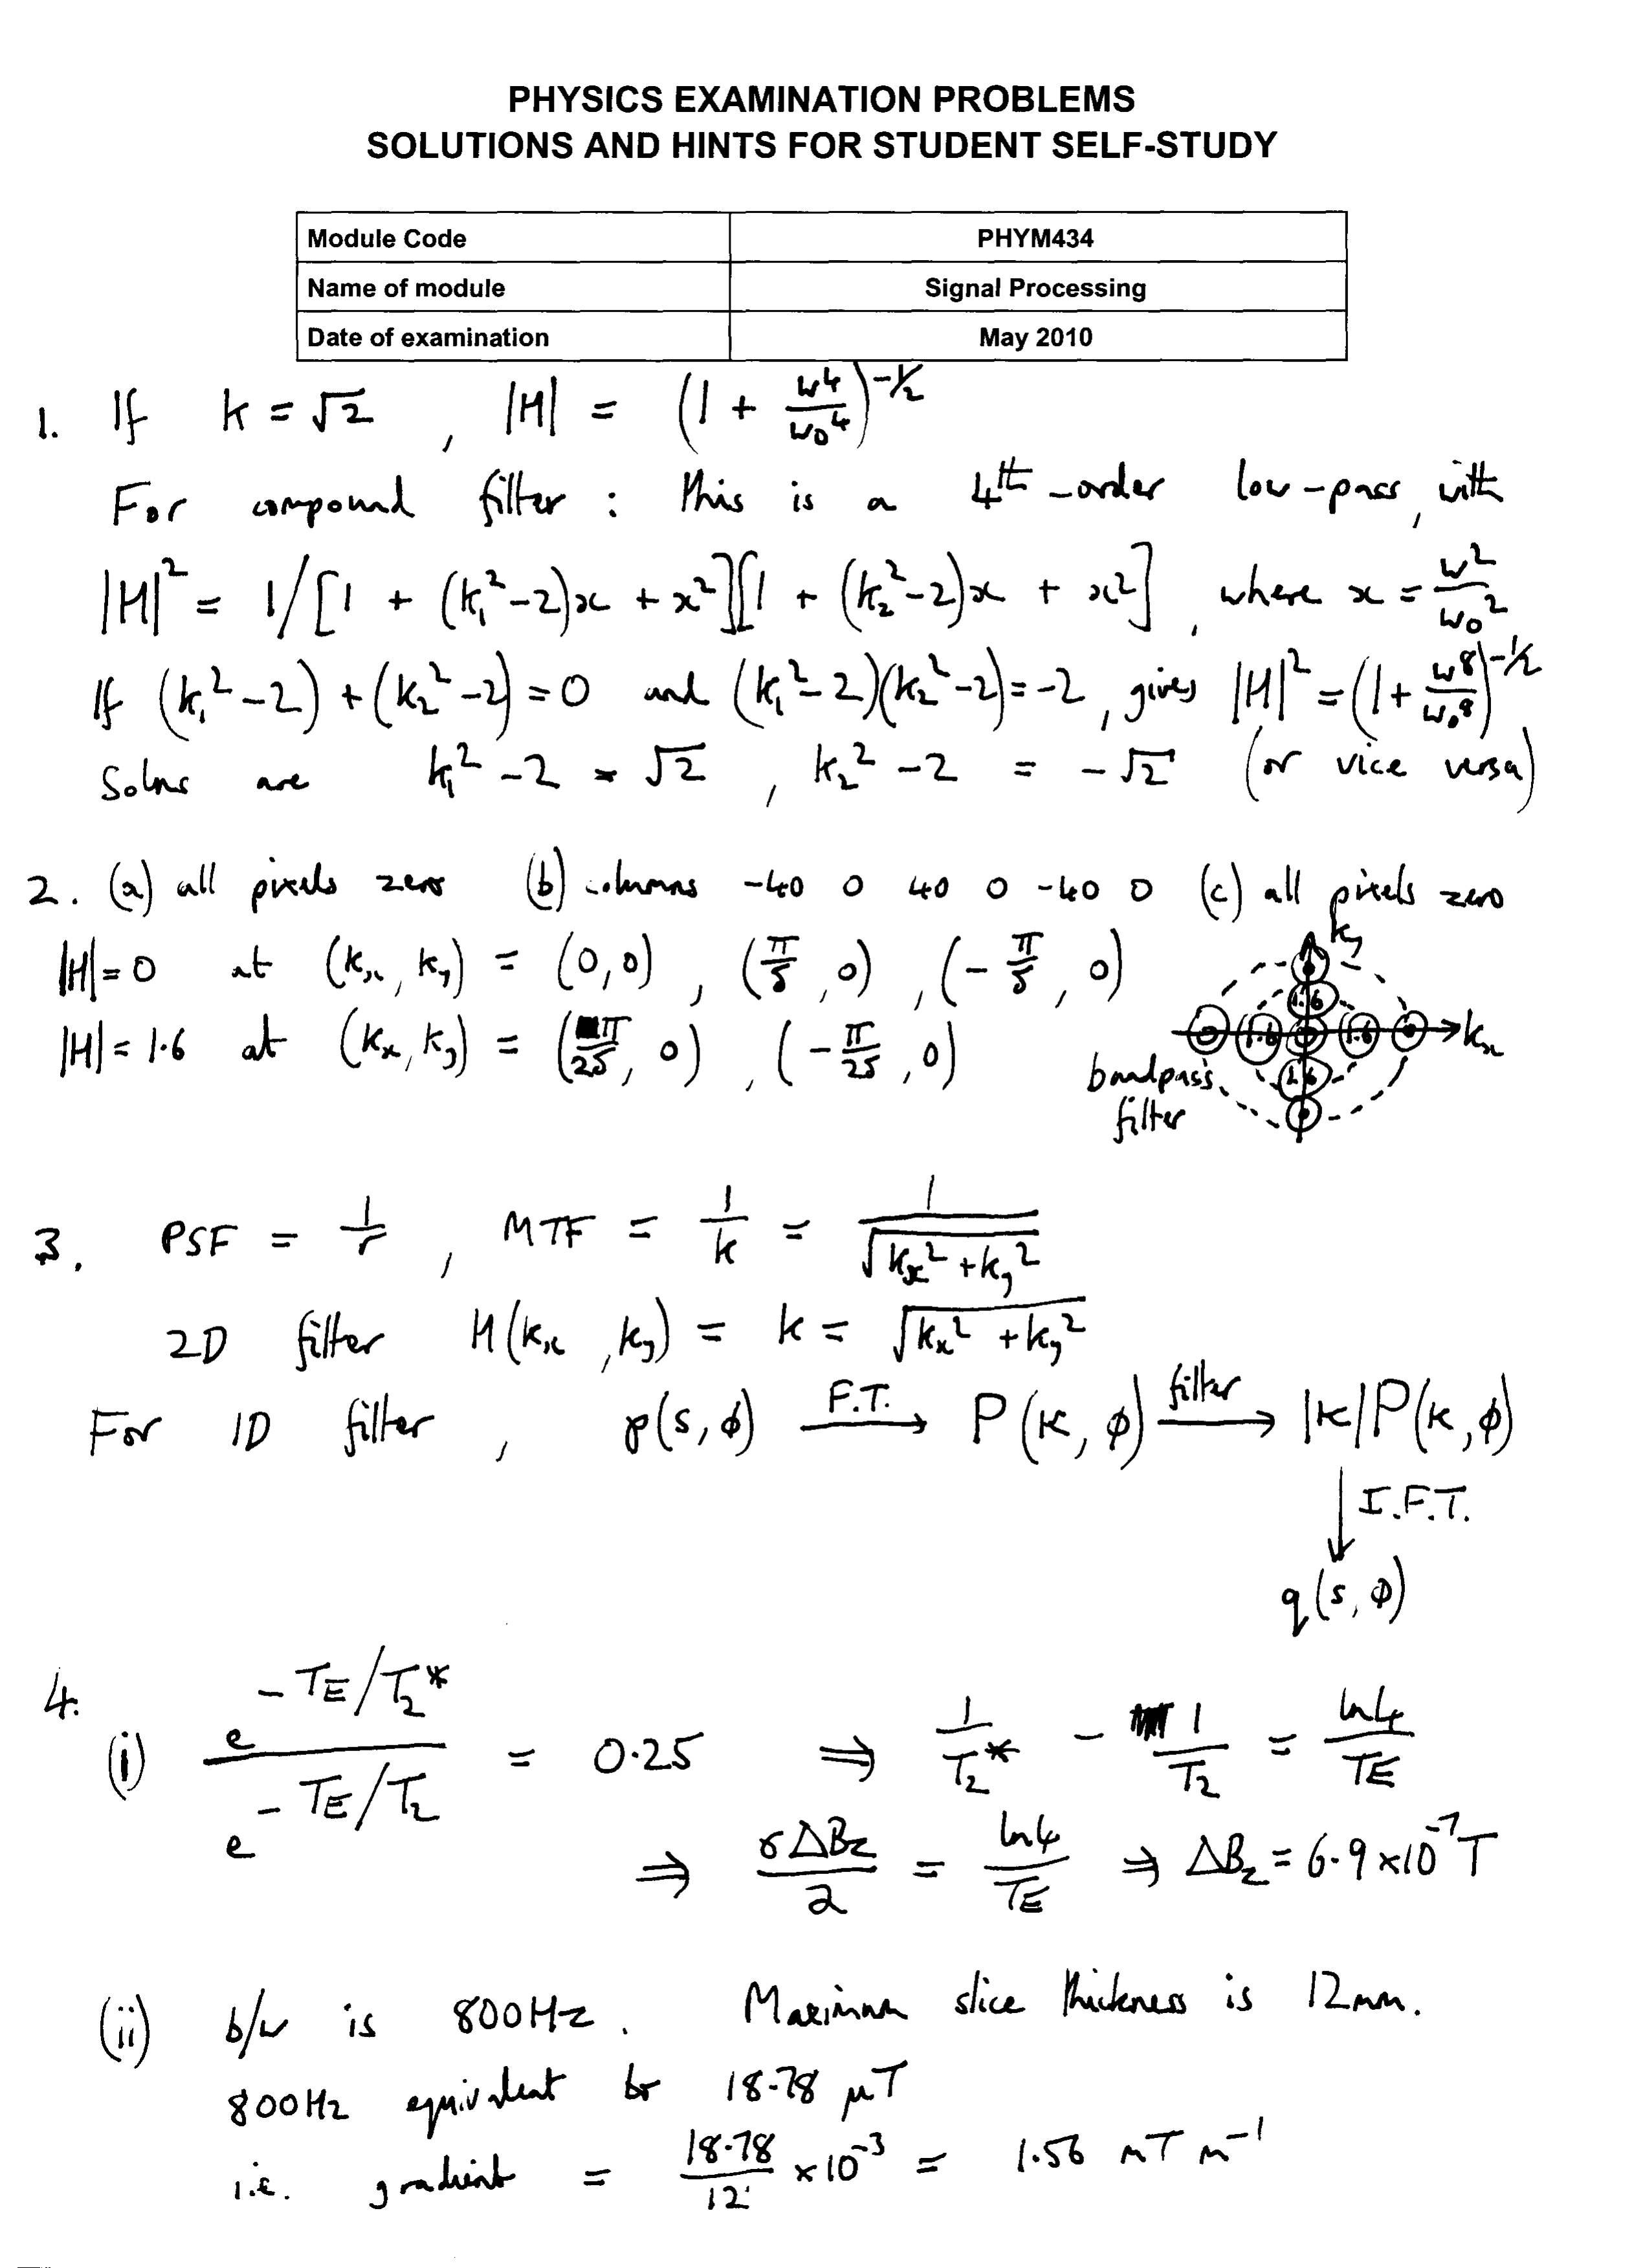 PHYSICS EXAMINATION PROBLEMS
SOLUTIONS AND HINTS FOR STUDENT SELF-STUDY
Module Code PHYM434
Name of module Signal Processing
Date of examination May 2010
1. If k = √2 , |H| = (1 + ω⁴/ω₀⁴)^(-1/2)
For compound filter : this is a 4th-order low-pass, with
|H|² = 1/[1 + (k₁²-2)x + x²][1 + (k₂²-2)x + x²] , where x = ω²/ω₀²
If (k₁²-2) + (k₂²-2) = 0 and (k₁²-2)(k₂²-2) = -2 , gives |H|² = (1 + ω⁸/ω₀⁸)^(-1/2)
Solns are k₁²-2 = √2 , k₂²-2 = -√2 (or vice versa)
2. (a) all pixels zero (b) columns -40 0 40 0 -40 0 (c) all pixels zero
|H| = 0 at (kx, ky) = (0,0) , (π/5, 0) , (-π/5, 0)
|H| = 1.6 at (kx, ky) = (π/25, 0) , (-π/25, 0)
ky
1.6
0 1.6 0 1.6 0 kx
1.6
0
bandpass
filter
3. PSF = 1/r , MTF = 1/k = 1/√(kx² + ky²)
2D filter H(kx, ky) = k = √(kx² + ky²)
For 1D filter , p(s, φ) F.T. → P(κ, φ) filter → |κ|P(κ, φ)
↓ I.F.T.
q(s, φ)
4.
(i) e^(-TE/T₂*) / e^(-TE/T₂) = 0.25 ⇒ 1/T₂* - 1/T₂ = ln4/TE
⇒ γΔBz/2 = ln4/TE ⇒ ΔBz = 6.9 × 10⁻⁷ T
(ii) b/w is 800Hz. Maximum slice thickness is 12mm.
800Hz equivalent to 18.78 μT
i.e. gradient = 18.78/12 × 10⁻³ = 1.56 mT m⁻¹